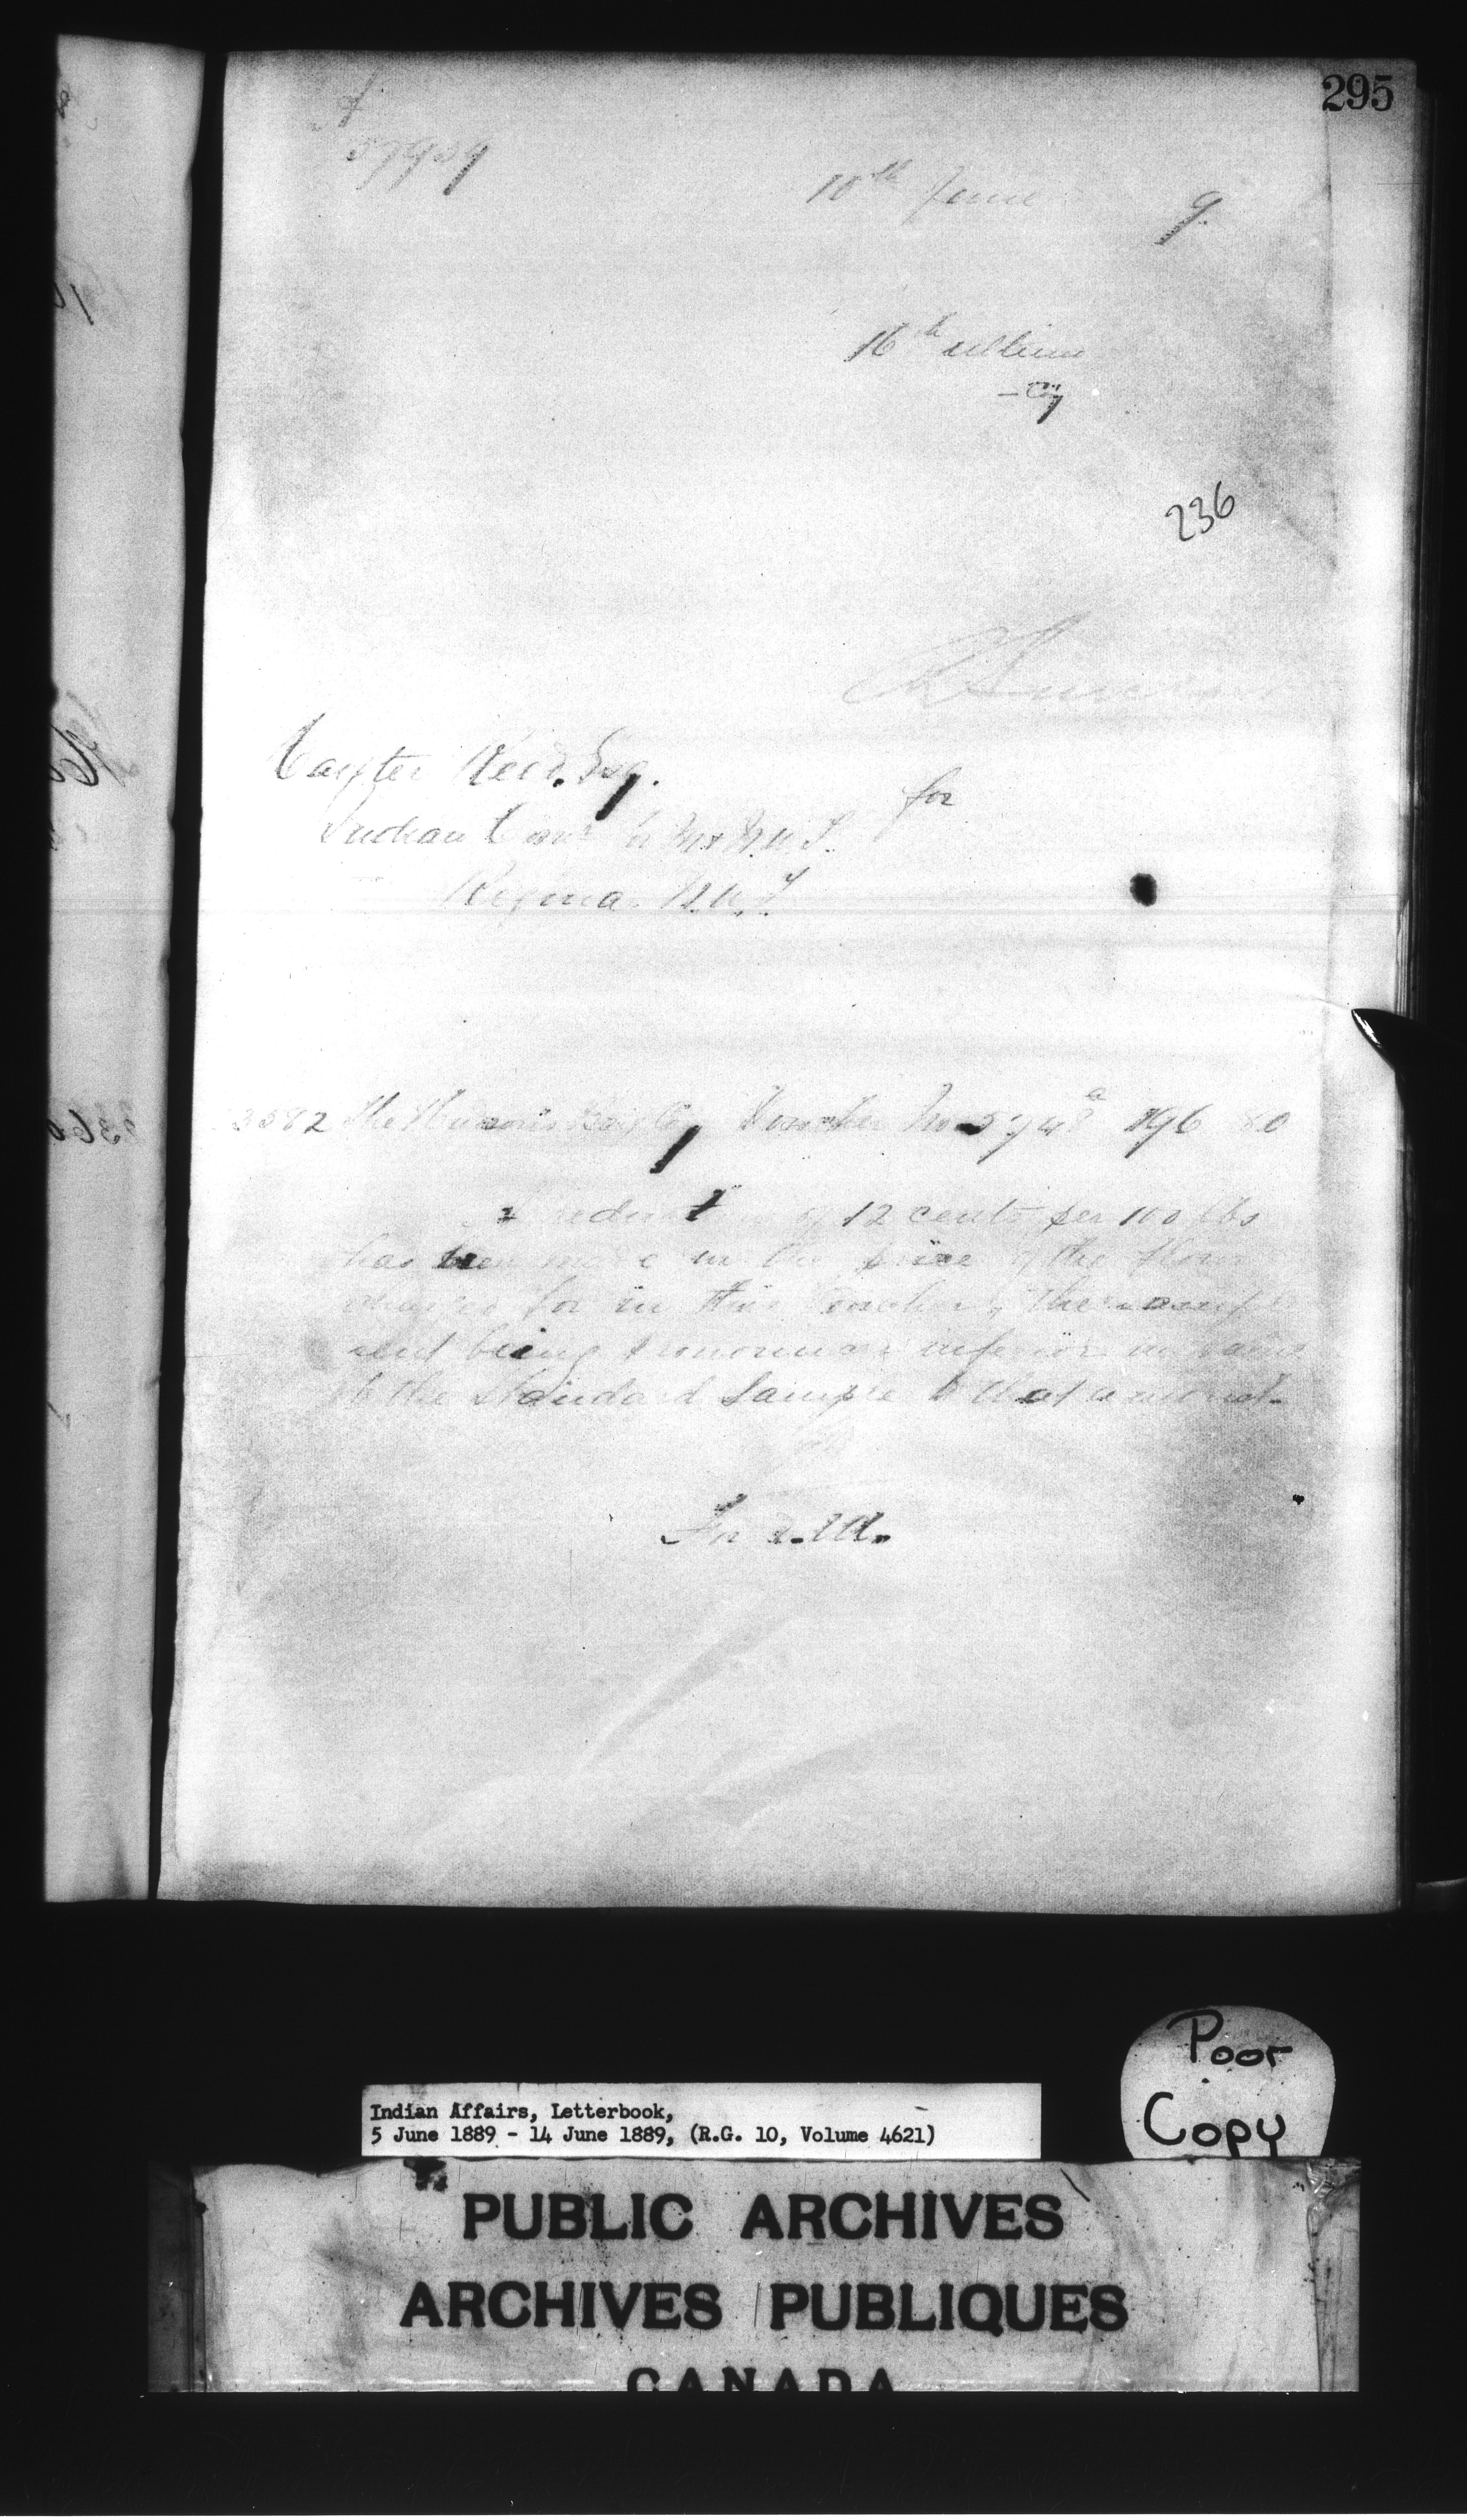 295
57959
10th June 9
16th ultimo
236
Hayter Reed. Esq.
for
Indian Comr
Regina N.W.T.
3582 The Hudson's Bay Co Voucher No 574a 196 80
A reduction of 12 cents per 100 lbs
has been made in the price of the flour
charged for in this Voucher, the consign
ment being pronounced inferior in value
to the Standard Sample to that amount.
Poor
Copy
Indian Affairs, Letterbook,
5 June 1889 - 14 June 1889, (R.G. 10, Volume 4621)
PUBLIC ARCHIVES
ARCHIVES PUBLIQUES
CANADA